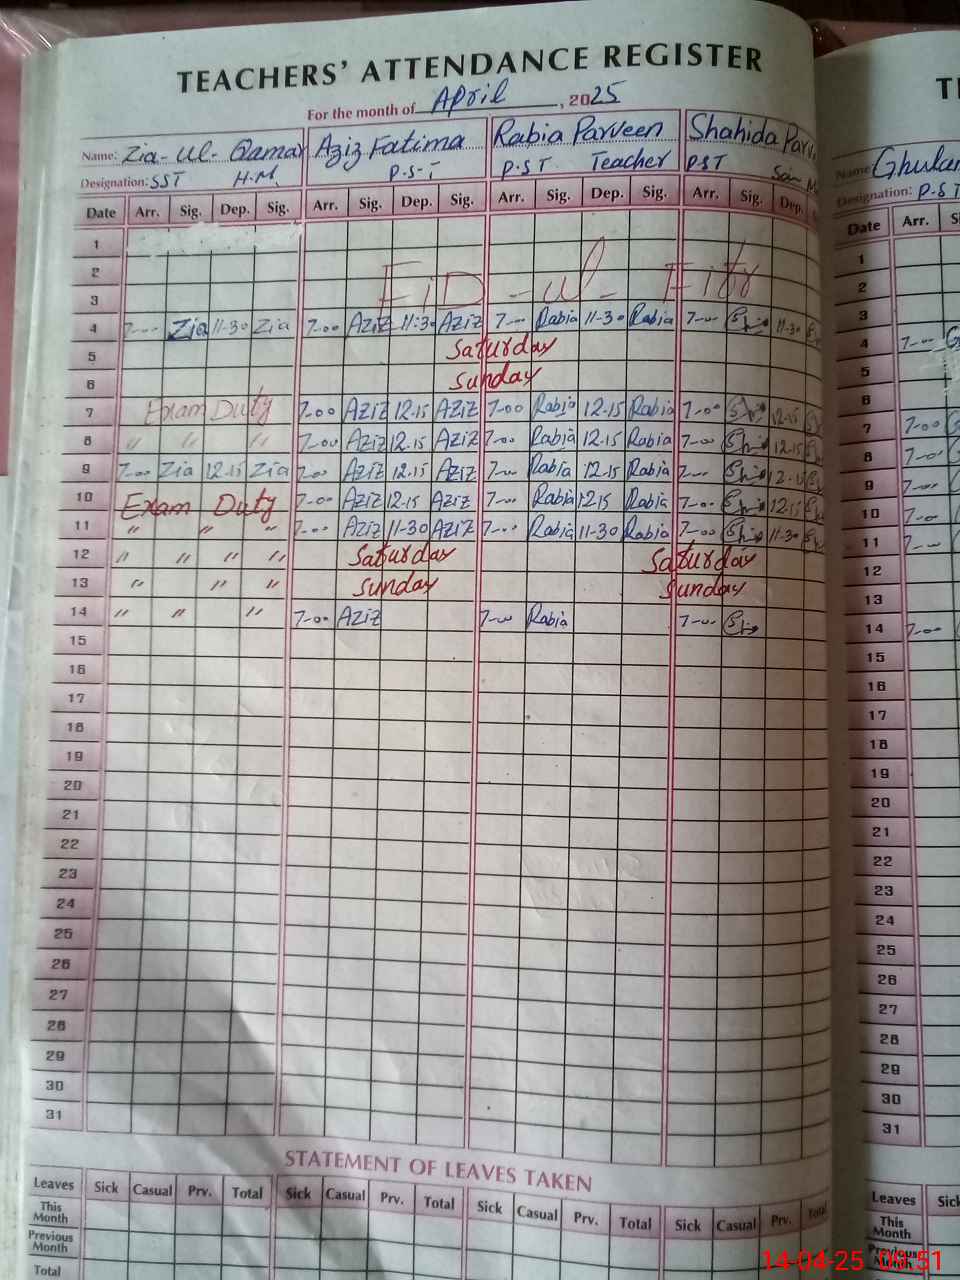 TEACHERS' ATTENDANCE REGISTER
For the month of April, 2025
Name: Zia-ul-Qamar Aziz Fatima Rabia Parveen Shahida Parv
Designation: SST H.M. P.S.T P.S.T Teacher PST
Date Arr. Sig. Dep. Sig. Arr. Sig. Dep. Sig. Arr. Sig. Dep. Sig. Arr. Sig. Dep.
1
2 EiD-ul-Fitr
3
4 7-00 Zia 11-30 Zia 7-00 Aziz 11:30 Aziz 7-00 Rabia 11-30 Rabia 7-00 11-30
5 Saturday
6 Sunday
7 Exam Duty 7-00 Aziz 12.15 Aziz 7-00 Rabia 12.15 Rabia 7-00 12.15
8 " " " 7-00 Aziz 12.15 Aziz 7-00 Rabia 12.15 Rabia 7-00 12.15
9 7-00 Zia 12.15 Zia 7-00 Aziz 12.15 Aziz 7-00 Rabia 12.15 Rabia 7-00 12.15
10 Exam Duty 7-00 Aziz 12.15 Aziz 7-00 Rabia 12.15 Rabia 7-00 12.15
11 " " " 7-00 Aziz 11-30 Aziz 7-00 Rabia 11-30 Rabia 7-00 11-30
12 " " " " Saturday Saturday
13 " " " Sunday Sunday
14 " " " 7-00 Aziz 7-00 Rabia 7-00
15
16
17
18
19
20
21
22
23
24
25
26
27
28
29
30
31
STATEMENT OF LEAVES TAKEN
Leaves Sick Casual Prv. Total Sick Casual Prv. Total Sick Casual Prv. Total Sick Casual Prv. Total
This Month
Previous Month
Total
Name
Designation: P.S.T
Date Arr.
1
2
3
4 7-00
5
6
7 7-00
8 7-00
9 7-00
10 7-00
11 7-00
12
13
14 7-00
15
16
17
18
19
20
21
22
23
24
25
26
27
28
29
30
31
Leaves
This Month
Previous Month
Total
14-04-25 09:51